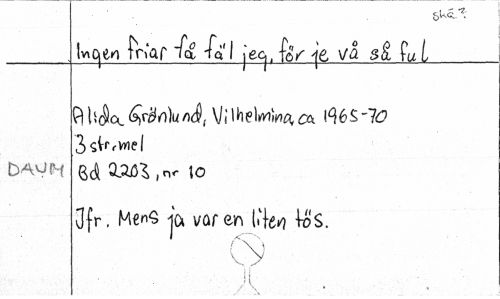 Skä?
Ingen friar få fäl jeg, för je vå så ful
Alida Grönlund, Vilhelmina, ca 1965-70
3 str, mel
DAUM Bd 2203, nr 10
Jfr. Mens ja var en liten tös.